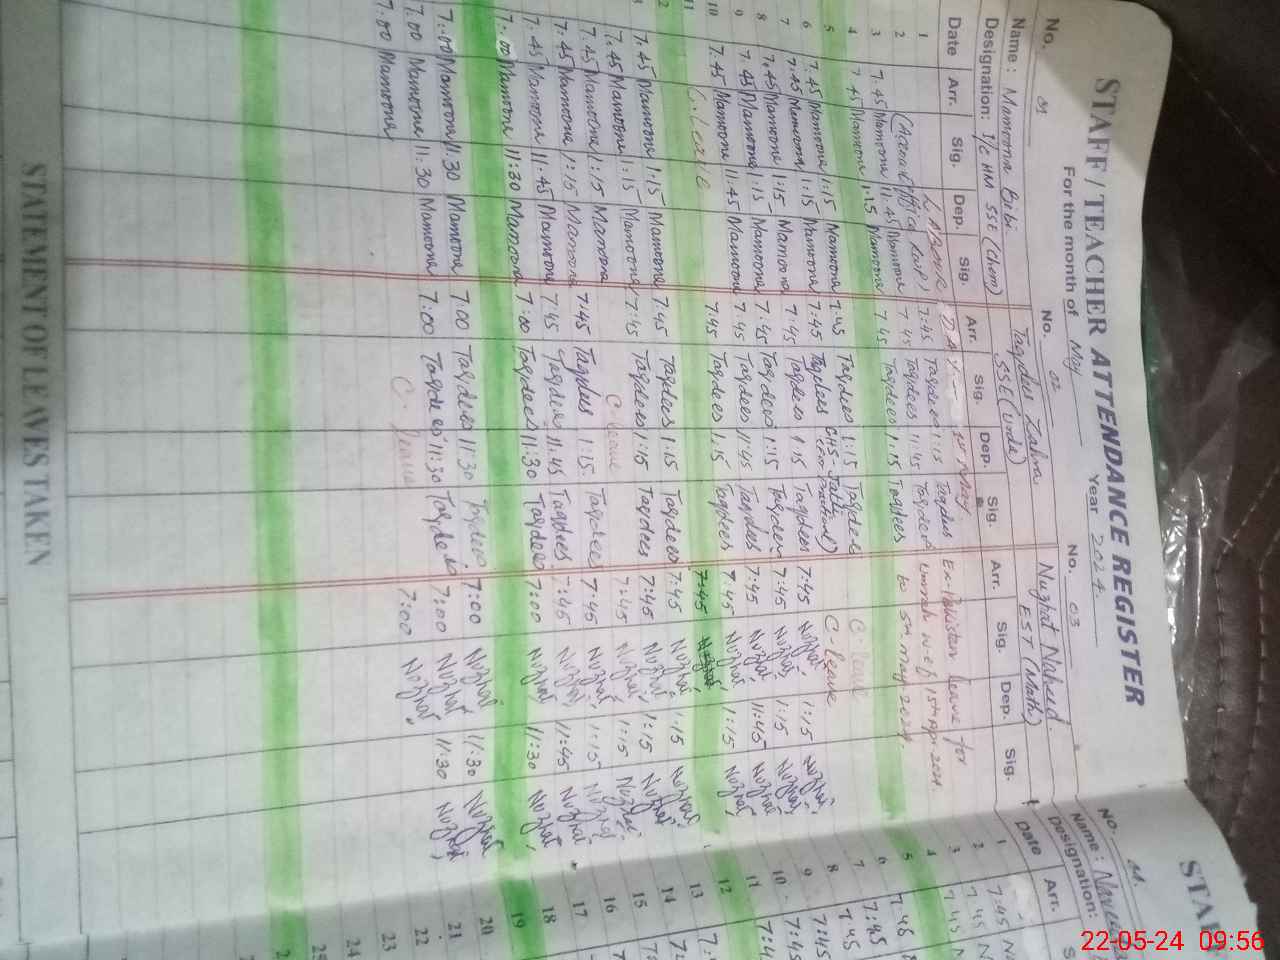 STAFF / TEACHER ATTENDANCE REGISTER
For the month of May Year 2024
No. 01 No. 02 No. 03
Name : Mamoona Bibi Taqdees Zahra Nughat Naheed
Designation: I/c HM SSE (Chem) SSE (Urdu) EST (Math)
Date Arr. Sig. Dep. Sig. Arr. Sig. Dep. Sig. Arr. Sig. Dep. Sig.
1 LABOUR DAY 1st May Ex-Pakistan leave for
2 7:45 Taqdees 1:15 Taqdees Umrah w.e.f 15th Apr 2024
3 7.45 Mamoona 11:45 Mamoona 7:45 Taqdees 11:45 Taqdees to 5th may 2024.
4 7.45 Mamoona 1:15 Mamoona 7:45 Taqdees 1:15 Taqdees
5
6 7.45 Mamoona 1:15 Mamoona 7:45 Taqdees 1:15 Taqdees C-leave
7 7.45 Mamoona 1:15 Mamoona 7:45 Taqdees C-leave
8 7.45 Mamoona 1:15 Mamoona 7:45 Taqdees 1:15 Taqdees 7:45 Nuzhat 1:15 Nuzhat
9 7.45 Mamoona 1:15 Mamoona 7:45 Taqdees 1:15 Taqdees 7:45 Nuzhat 1:15 Nuzhat
10 7.45 Mamoona 11:45 Mamoona 7:45 Taqdees 11:45 Taqdees 7:45 Nuzhat 11:45 Nuzhat
11 C.leave 7:45 Taqdees 1:15 Taqdees 7:45 Nuzhat 1:15 Nuzhat
7:45
7.45 Mamoona 1:15 Mamoona 7:45 Taqdees 1:15 Taqdees 7:45 Nuzhat 1:15 Nuzhat
7.45 Mamoona 1:15 Mamoona 7:45 Taqdees 1:15 Taqdees 7:45 Nuzhat 1:15 Nuzhat
7.45 Mamoona 1:15 Mamoona C-leave 7:45 Nuzhat 1:15 Nuzhat
7.45 Mamoona 1:15 Mamoona 7:45 Taqdees 1:15 Taqdees 7:45 Nuzhat 1:15 Nuzhat
7.45 Mamoona 11:45 Mamoona 7:45 Taqdees 11:45 Taqdees 7:45 Nuzhat 11:45 Nuzhat
7:00 Mamoona 11:30 Mamoona 7:00 Taqdees 11:30 Taqdees 7:00 Nuzhat 11:30 Nuzhat
7:00 Mamoona 11:30 Mamoona 7:00 Taqdees 11:30 Taqdees 7:00 Nuzhat 11:30 Nuzhat
7.00 Mamoona 11:30 Mamoona 7:00 Taqdees 11:30 Taqdees 7:00 Nuzhat 11:30 Nuzhat
7.00 Mamoona C-leave 7:00 Nuzhat
STATEMENT OF LEAVES TAKEN
STAF
No. 04
Name :
Designation:
Date Arr.
1
2 7:45
3 7:45
4
5
6 7:45
7 7:45
8 7:45
9 7:45
10 7:45
11 7:4
12
13
14
15
16
17
18
19
20
21
22
23
24
25
22-05-24 09:56